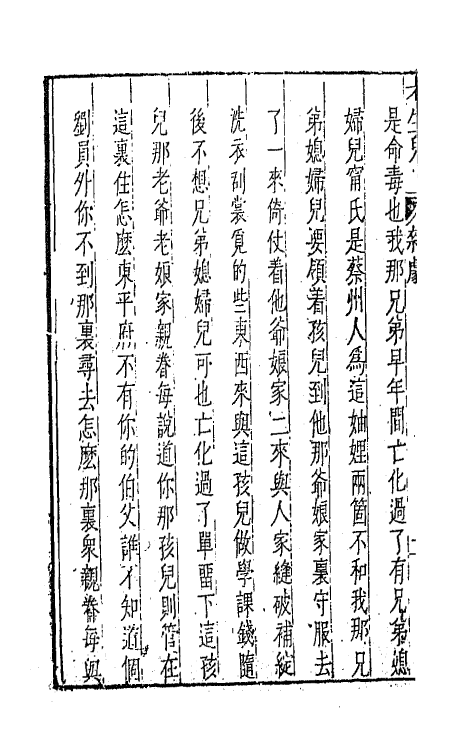 是命毒也我那兄弟早年間亡化過了有兄弟媳
婦兒甯氏是蔡州人爲這妯娌兩箇不和我那兄
弟媳婦兒要領着孩兒到他那爺娘家裏守服去
了一來倚仗着他爺娘家二來與人家縫破補綻
洗衣刮裳覓的些東西來與這孩兒做學課錢隨
後不想兄弟媳婦兒可也亡化過了單畱下這孩
兒那老爺老娘家親眷每說道你那孩兒則管在
這裏住怎麽東平府不有你的伯父誰不知道個
劉員外你不到那裏尋去怎麽那裏衆親眷每與